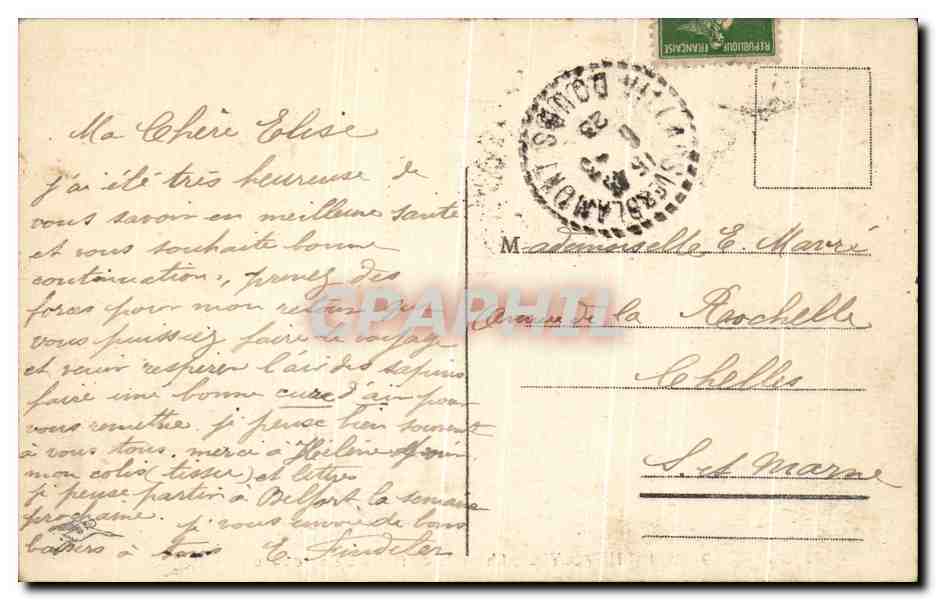 Ma Chère Elise
j'ai été très heureuse de
vous savoir en meilleure santé
et vous souhaite bonne
continuation, prenez des
forces pour mon retour que
vous puissiez faire le voyage
et venir respirer l'air des sapins
faire une bonne cure d'air pour
vous remettre. je pense bien souvent
à vous tous. merci à Hélène
mon colis (tissu) et lettres
je pense partir à Belfort la semaine
prochaine. je vous envoie de bons
baisers à tous E.
REPUBLIQUE FRANÇAISE
VILLARS-S-BLAMONT
DOUBS
15
6
23
Mademoiselle E. Mavré
Avenue de la Rochelle
Chelles
S. et Marne
CPAPHIL